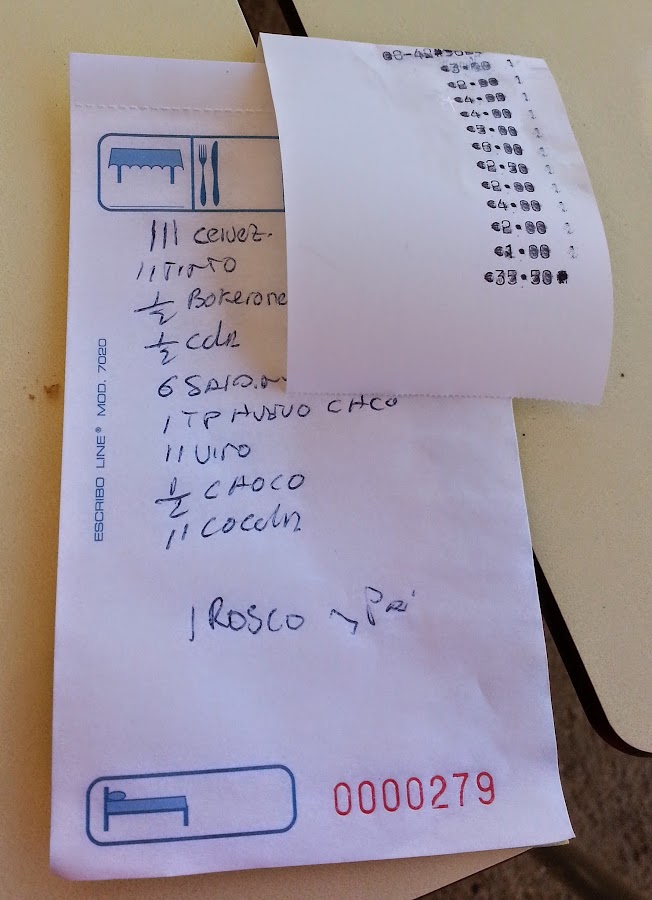 €3.50 1
€2.00 1
€4.00 1
€4.00 1
€5.00 1
€6.00 1
€2.50 1
€2.00 1
€4.00 1
€2.00 1
€1.00 1
€35.50#
III cervez.
II TINTO
1/2 Bokerone
1/2
6
1 TP HUEVO CHCO
II VINO
1/2 CHOCO
II
1 ROSCO y
ESCRIBO LINE® MOD. 7020
0000279